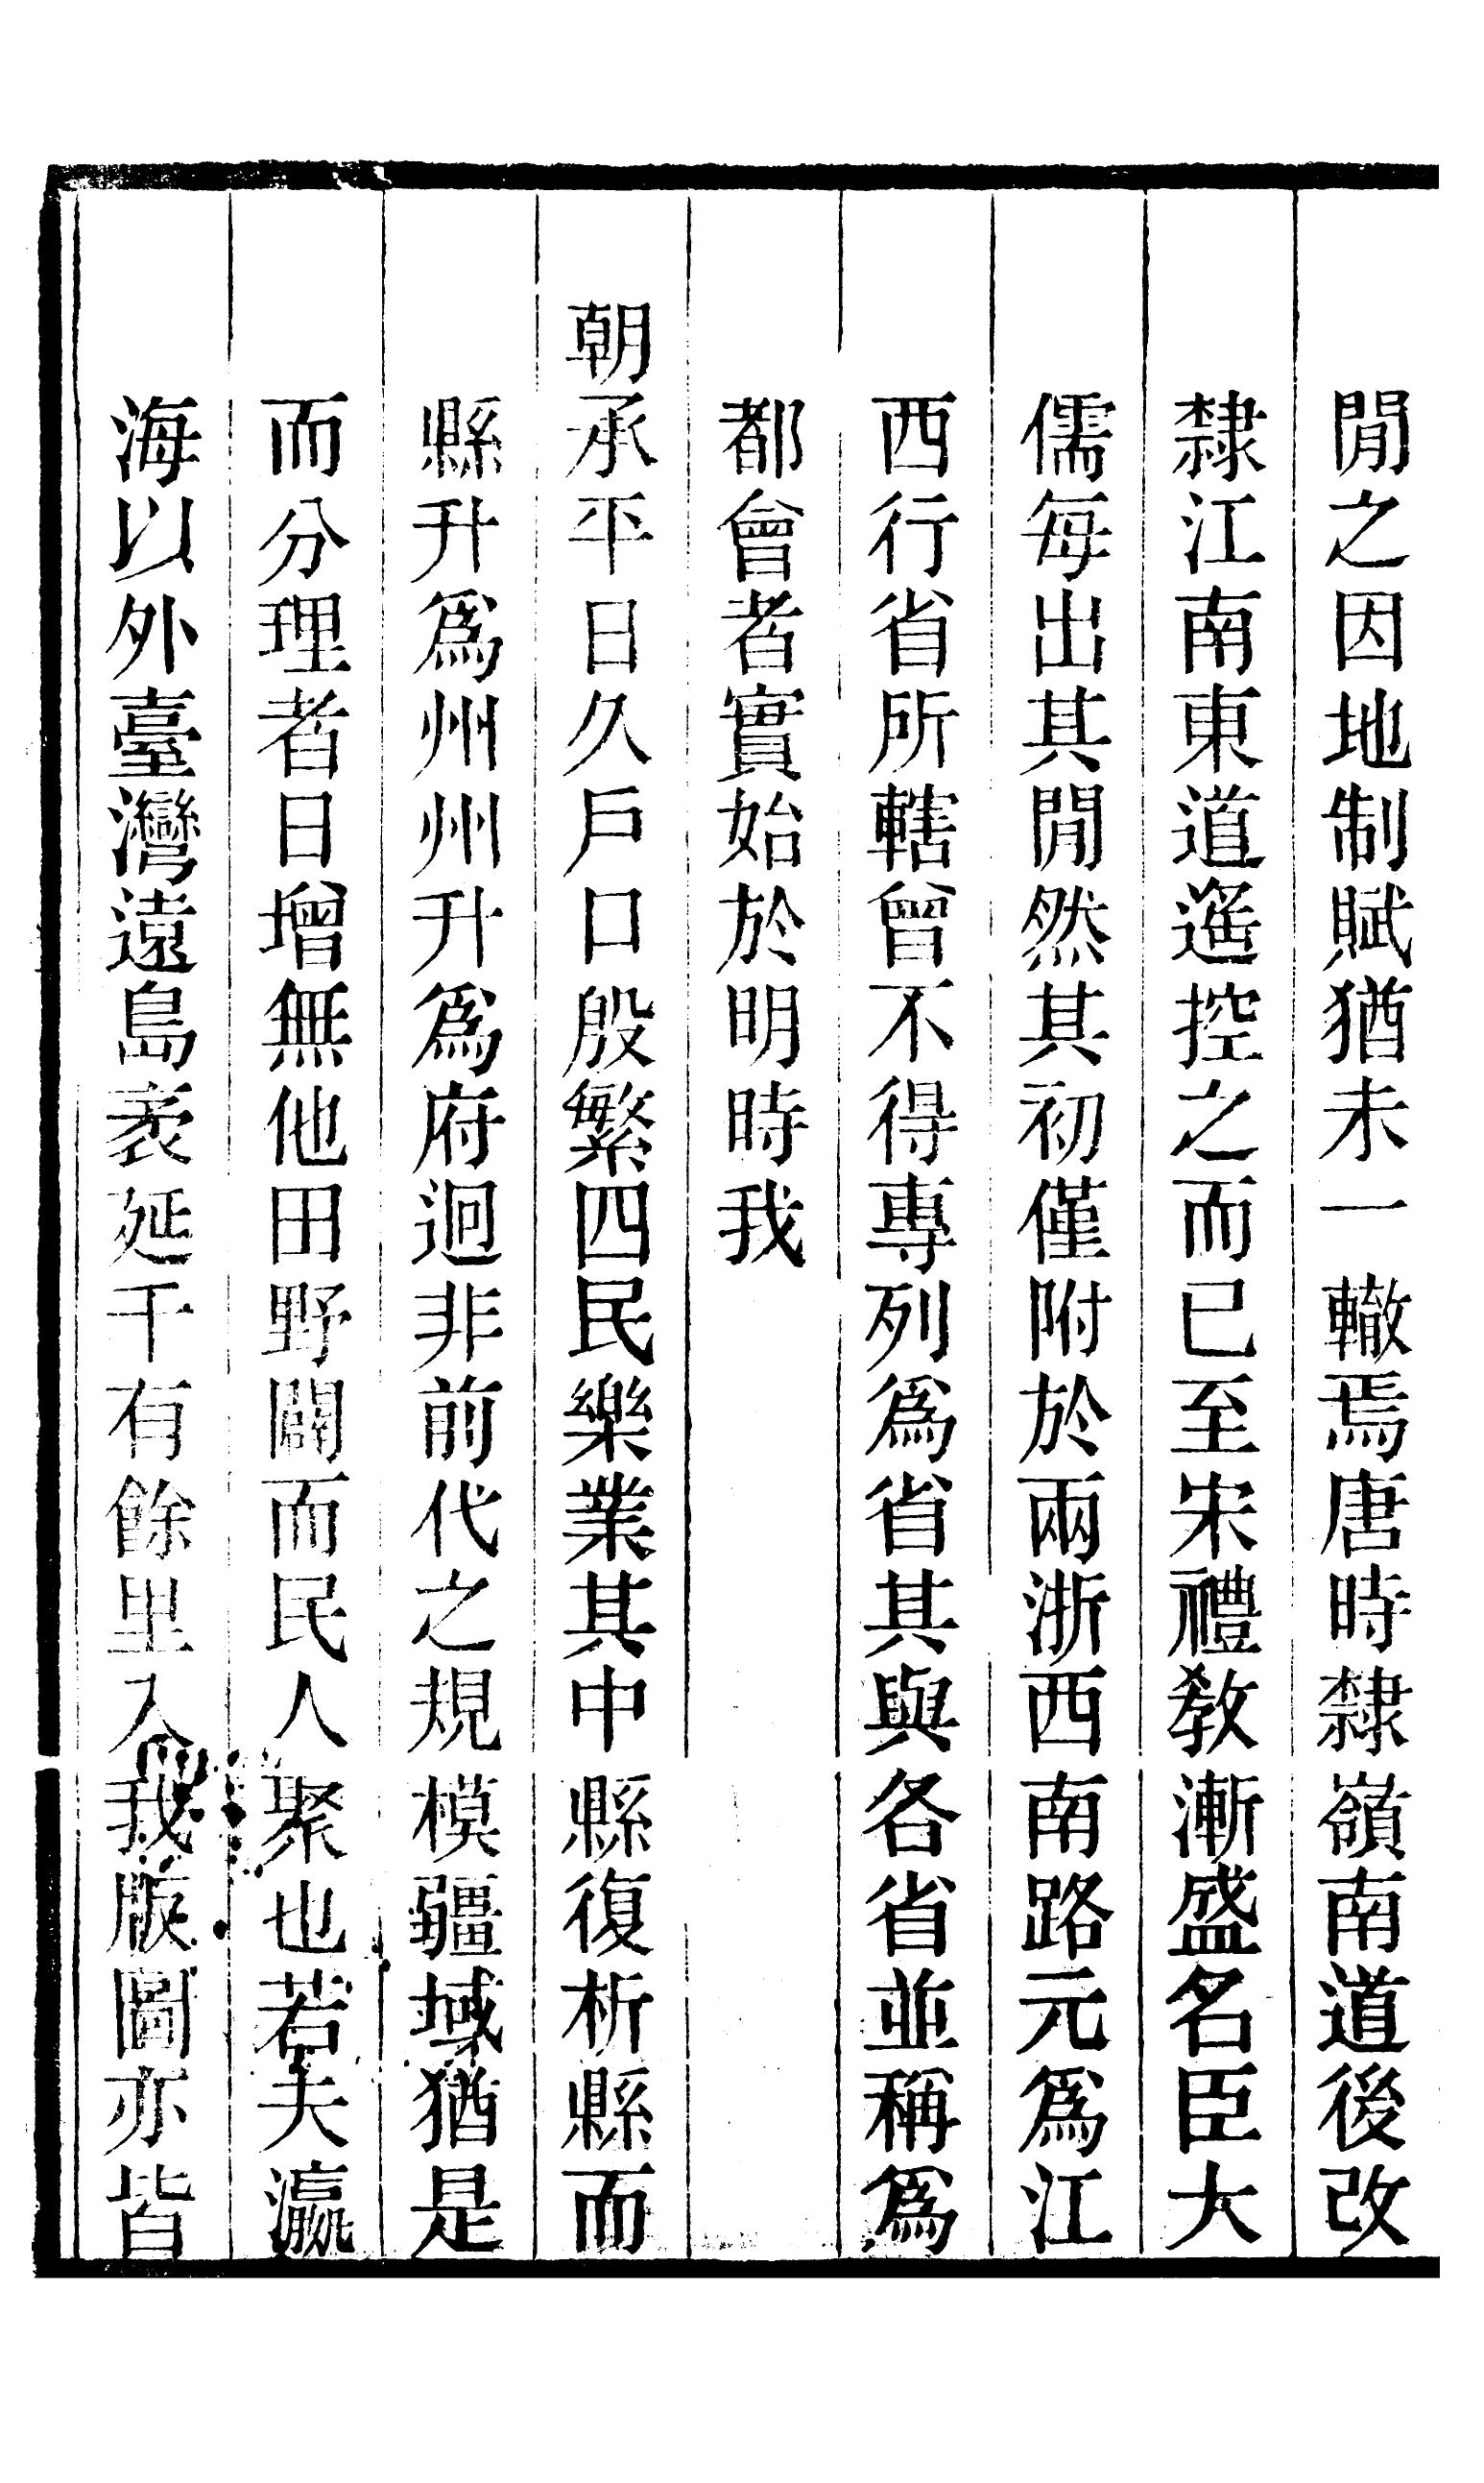 閒之因地制賦猶未一轍焉唐時隸嶺南道後改
隸江南東道遙控之而已至宋禮教漸盛名臣大
儒每出其閒然其初僅附於兩浙西南路元爲江
西行省所轄曾不得專列爲省其與各省並稱爲
都會者實始於明時我
朝承平日久戶口殷繁四民樂業其中縣復析縣而
縣升爲州州升爲府迥非前代之規模疆域猶是
而分理者日增無他田野闢而民人聚也若夫瀛
海以外臺灣遠島袤延千有餘里入我版圖亦皆